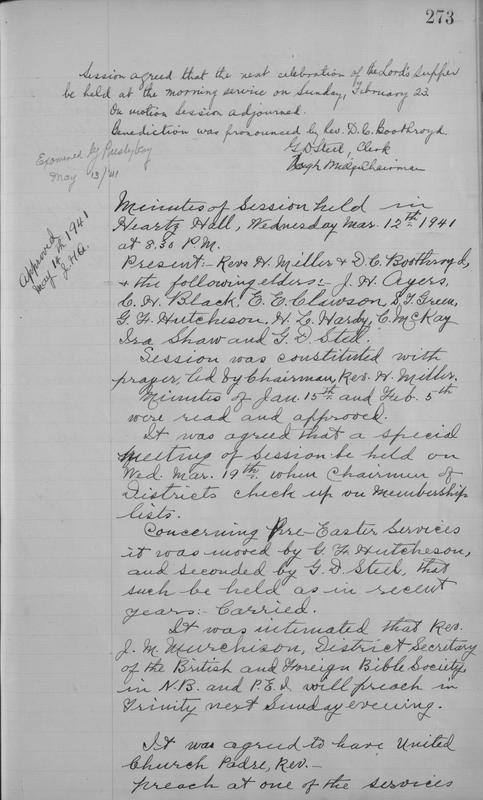 273
Session agreed that the next celebration of the Lord's Supper
be held at the morning service on Sunday, February 23.
On motion Session adjourned.
Benediction was pronounced by Rev. D. C. Boothroyd.
G D Steel, Clerk
Hugh Miller Chairman
Examined by Presbytery
May 13/41
Approved
May 14th 1941
J.H.A.
Minutes of Session held in
Heartz Hall, Wednesday Mar. 12th 1941
at 8.30 P.M.
Present:- Revs H. Miller & D. C. Boothroyd,
& the following elders:- J. H. Ayers,
C. H. Black, E. E. Clawson, S. T. Green,
G. F. Hutcheson, H. L. Hardy, C. McKay
Ira Shaw and G. D. Steel.
Session was constituted with
prayer, led by Chairman, Rev. H. Miller.
Minutes of Jan. 15th and Feb. 5th
were read and approved.
It was agreed that a special
Meeting of Session be held on
Wed. Mar. 19th, when Chairmen of
Districts check up on Membership
lists.
Concerning Pre-Easter Services
it was moved by G. F. Hutcheson,
and seconded by G. D. Steel, that
such be held as in recent
years:- Carried.
It was intimated that Rev.
J. M. Murchison, District Secretary
of the British and Foreign Bible Society,
in N.B. and P.E.I. will preach in
Trinity next Sunday evening.
It was agreed to have United
Church Padre, Rev. -
preach at one of the services